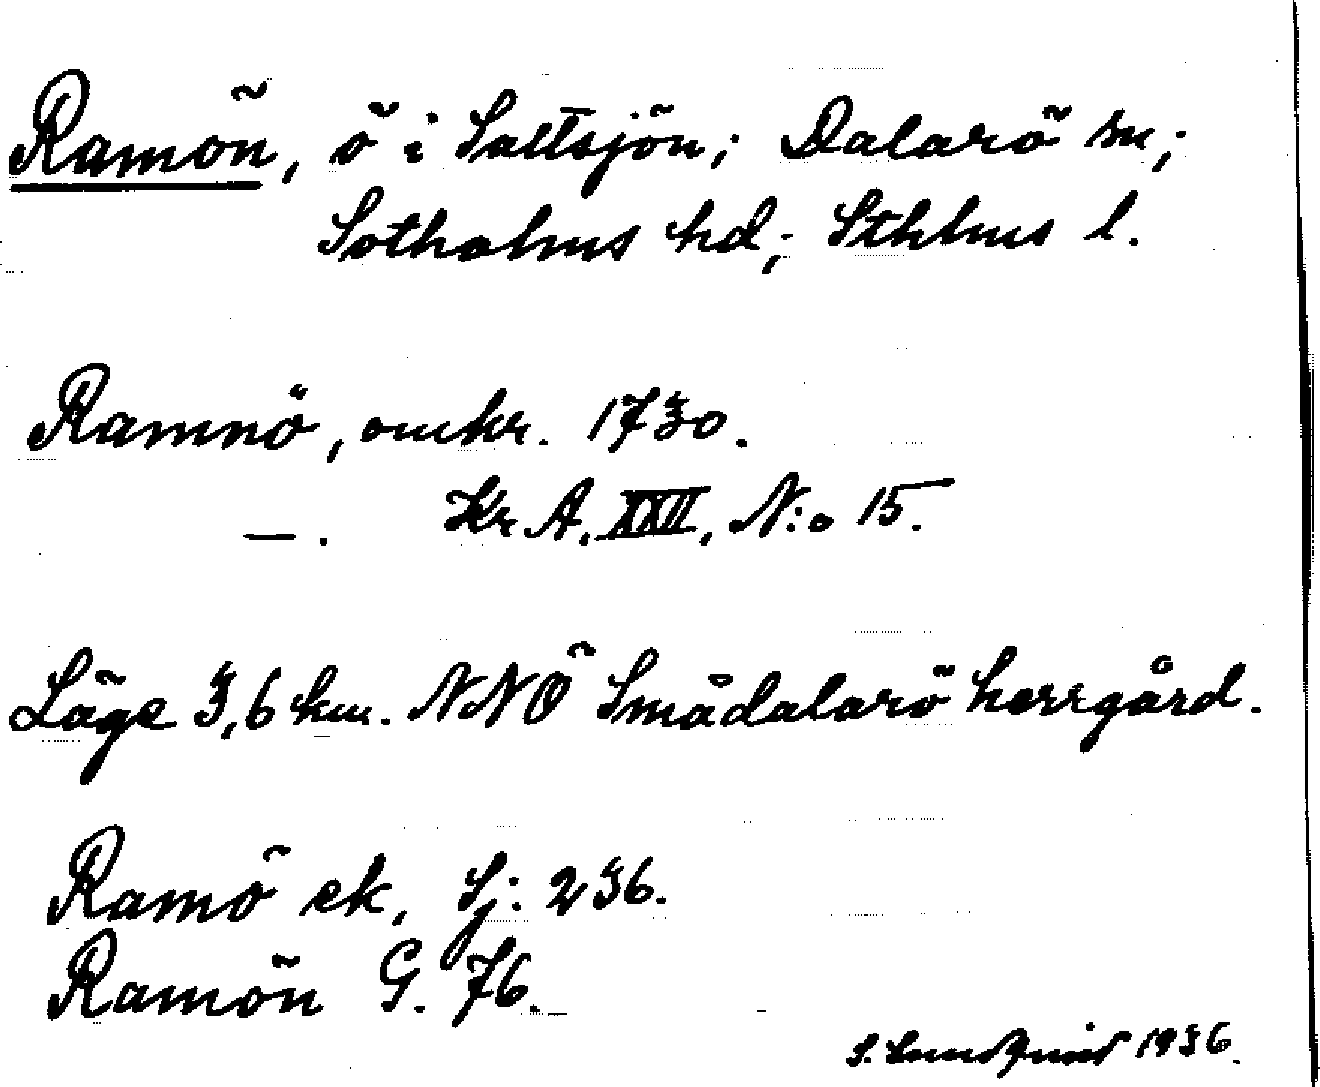 Ramön, ö i Saltsjön; Dalarö sn;
Sotholms hd; Sthlms l.
Ramnö, omkr. 1730.
—. Kr A. XXII, N:o 15.
Läge 3,6 km. NNÖ Smådalarö herrgård.
Ramö ek, Sj: 236.
Ramön G. 76.
S. Lundqvist 1936.